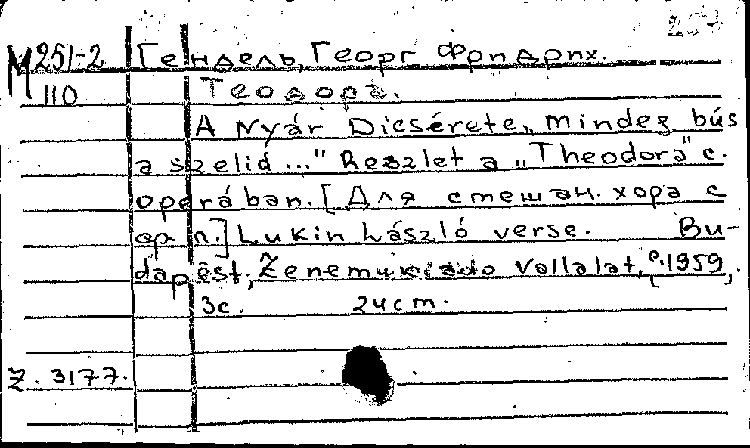 М 251-2 Гендель, Георг Фридрих.
110 Теодора.
A Nyár Dicsérete „mindez bús
a szelid ..." Reszlet a „Theodora" c.
operában. [Для смешан. хора с
ф.п.] Lukin László verse. Bu-
dapest, Zenemukiado Vallalat, c.1959,
3с. 24cm.
Z. 3177.